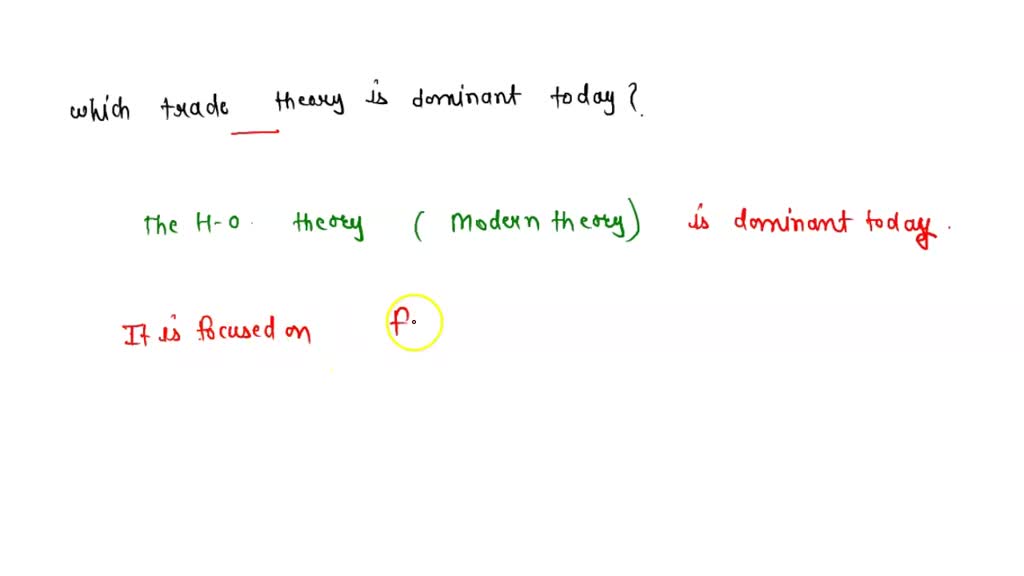 which trade theory is dominant today?
The H-O. theory (Modern theory) is dominant today.
It is focused on f